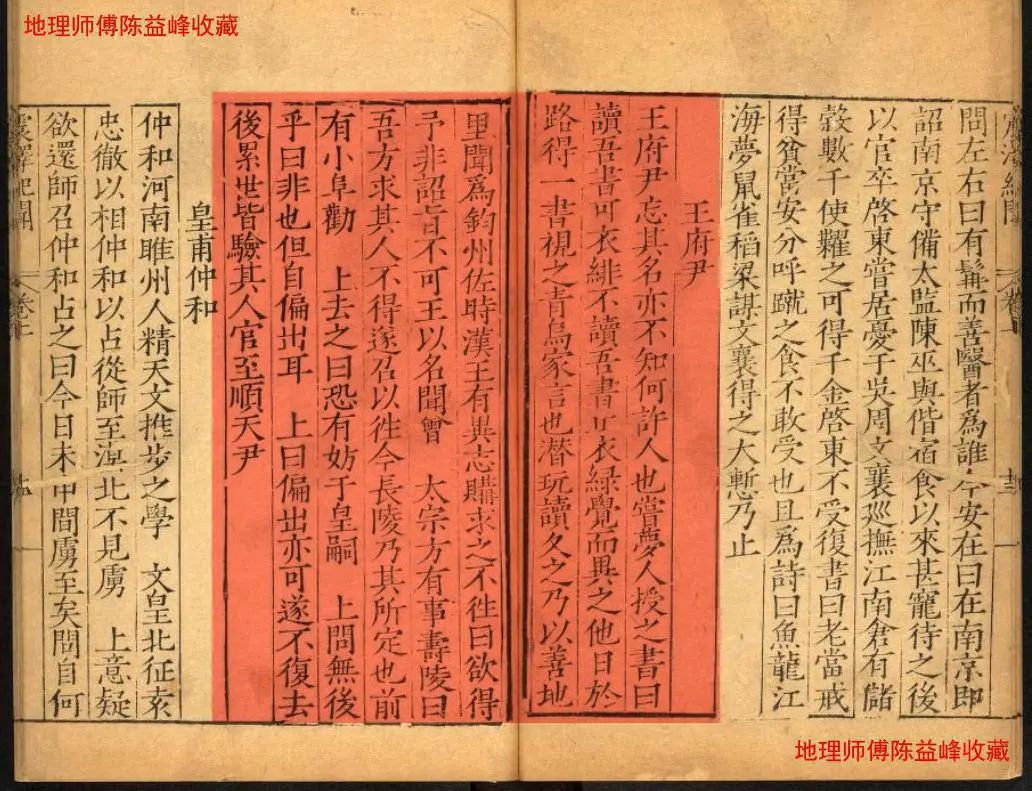 地理师傅陈益峰收藏
問左右曰有髯而善醫者爲誰今安在曰在南京即
詔南京守備太監陳巫與偕宿食以來甚寵待之後
以官卒啓東嘗居憂于吳周文襄巡撫江南倉有儲
穀數千使糶之可得千金啓東不受復書曰老當戒
得貧當安分呼蹴之食不敢受也且爲詩曰魚龍江
海夢鼠雀稻梁謀文襄得之大慙乃止
王府尹
王府尹忘其名亦不知何許人也嘗夢人授之書曰
讀吾書可衣緋不讀吾書止衣綠覺而異之他日於
路得一書視之青烏家言也潛玩讀久之乃以善地
里聞爲鈞州佐時漢王有異志購求之不徃曰欲得
予非詔旨不可王以名聞曾 太宗方有事壽陵曰
吾方求其人不得遂召以徃今長陵乃其所定也前
有小阜勸 上去之曰恐有妨于皇嗣 上問無後
乎曰非也但自偏出耳 上曰偏出亦可遂不復去
後累世皆驗其人官至順天尹
皇甫仲和
仲和河南睢州人精天文推步之學 文皇北征袁
忠徹以相仲和以占從師至漠北不見虜 上意疑
欲還師召仲和占之曰今日未申間虜至矣問自何
震澤紀聞 卷上
地理师傅陈益峰收藏